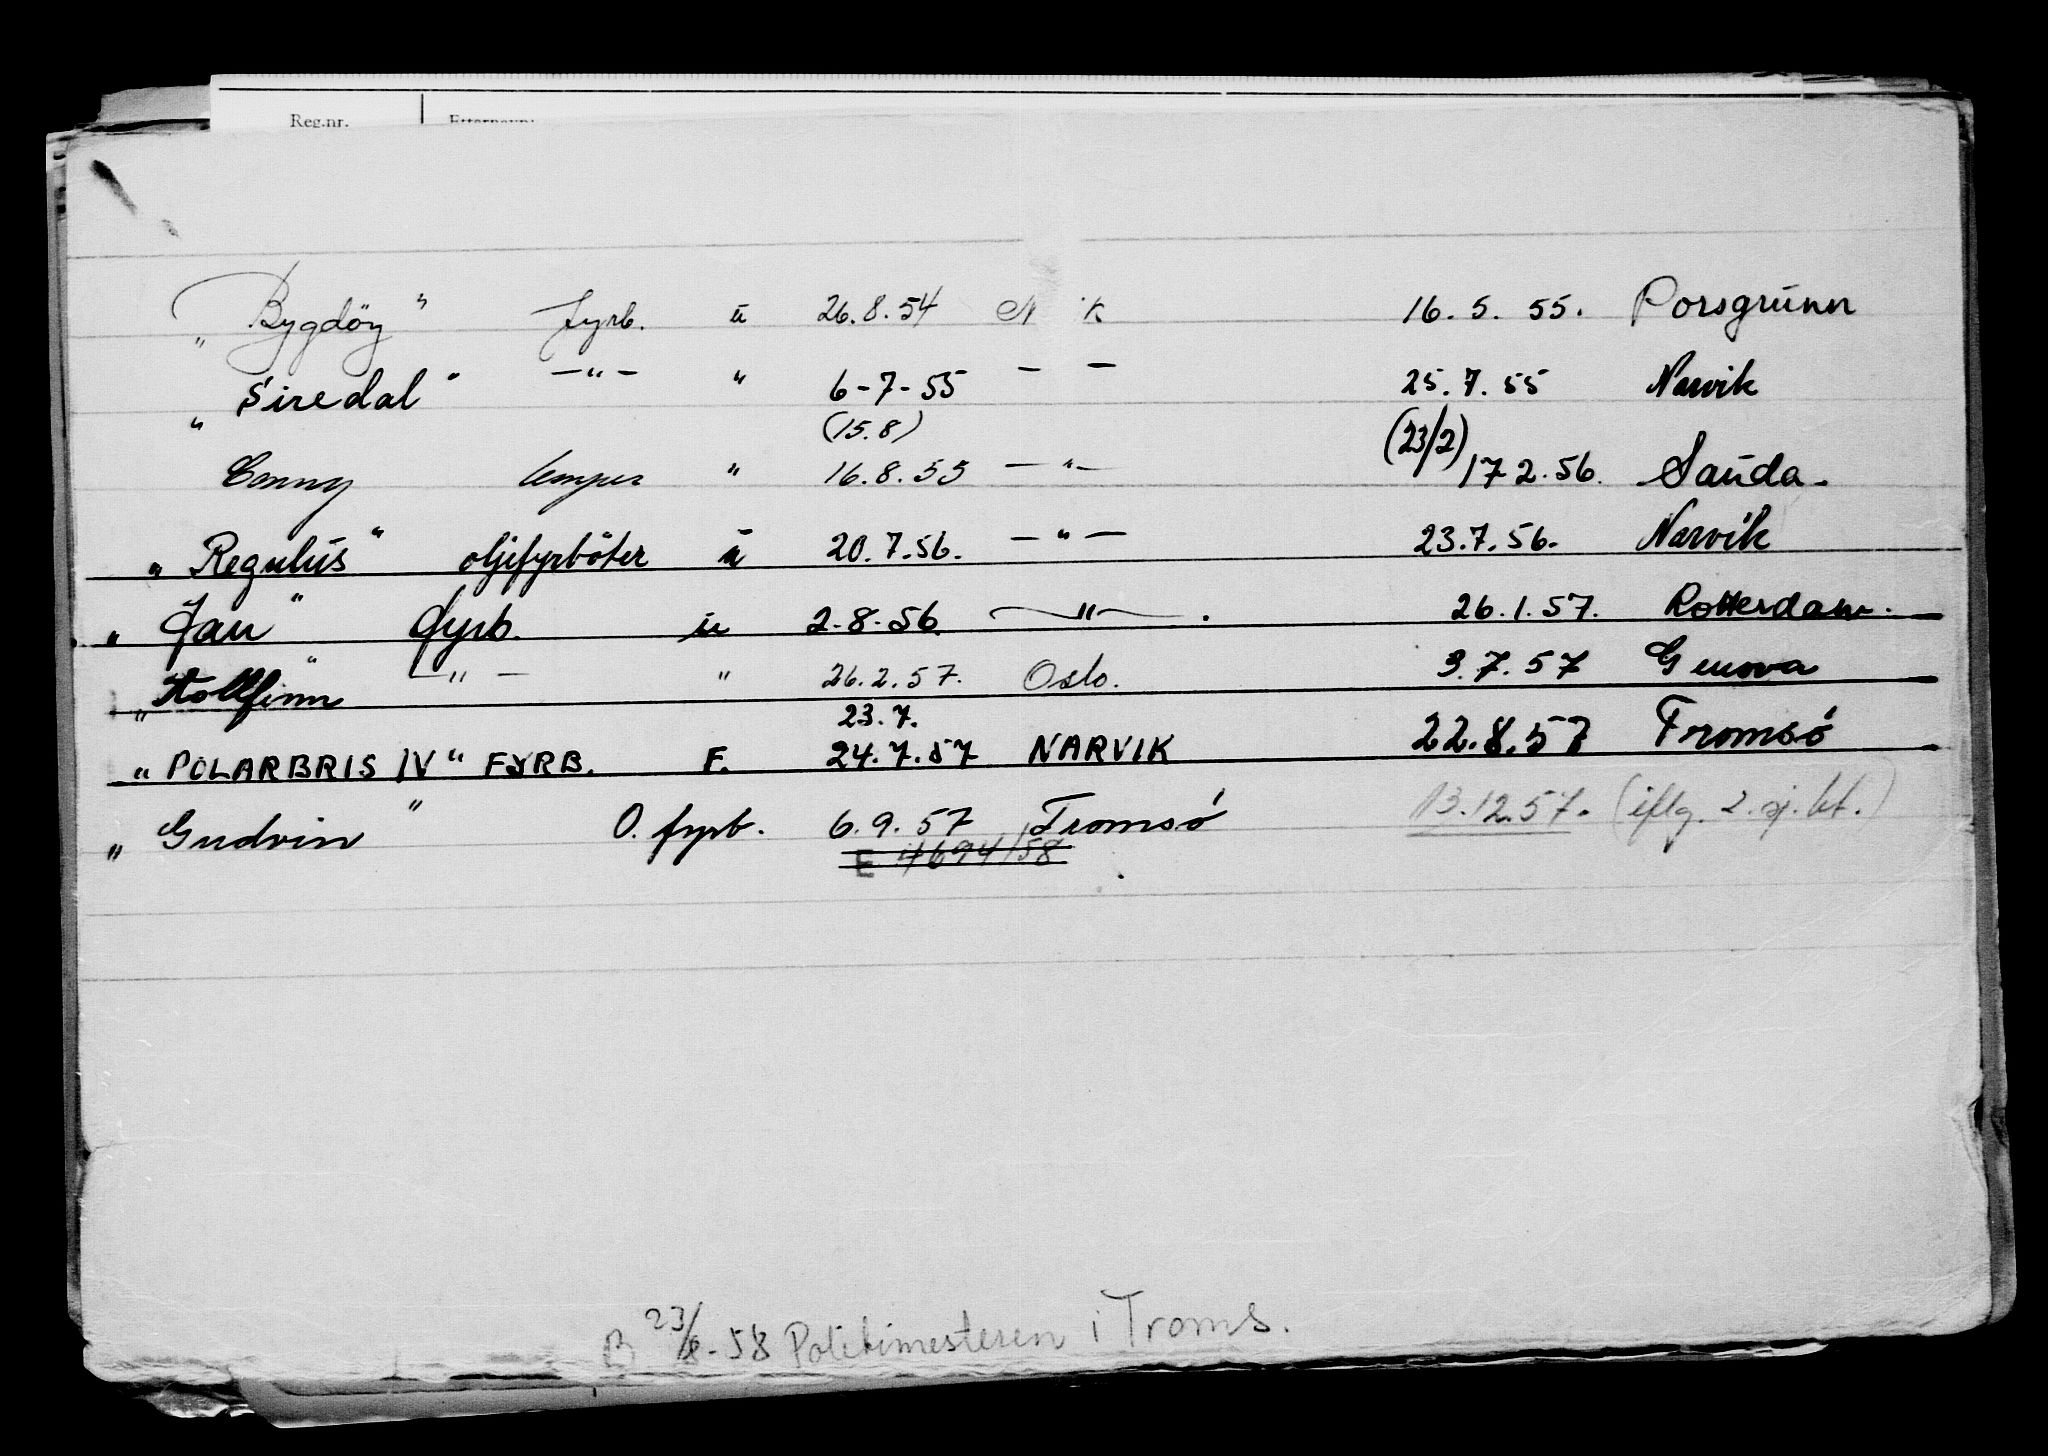 Reg.nr. Etternavn:
„Bygdöy" fyrb. u 26.8.54 N k 16.5.55. Porsgrunn
„Siredal" —"— " 6-7-55 — — 25.7.55 Narvik
(15.8) (23/2)
Conny lemper " 16.8.55 —"— 17 2.56. Sauda.
„Regulus" oljefyrböter u 20.7.56. —"— 23.7.56. Narvik
„Jau" fyrb. u 2.8.56. —"—. 26.1.57. Rotterdam.
„Kollfinn" —"— " 26.2.57. Oslo. 3.7.57 Genova
23.7.
„POLARBRIS IV" FYRB. F. 24.7.57 NARVIK 22.8.57 Tromsö
„Gudvin" O. fyrb. 6.9.57 Tromsö 13.12.57. (iflg. 2. sj. bt.)
E 4694/58
B 23/8-58 Politimesteren i Troms.